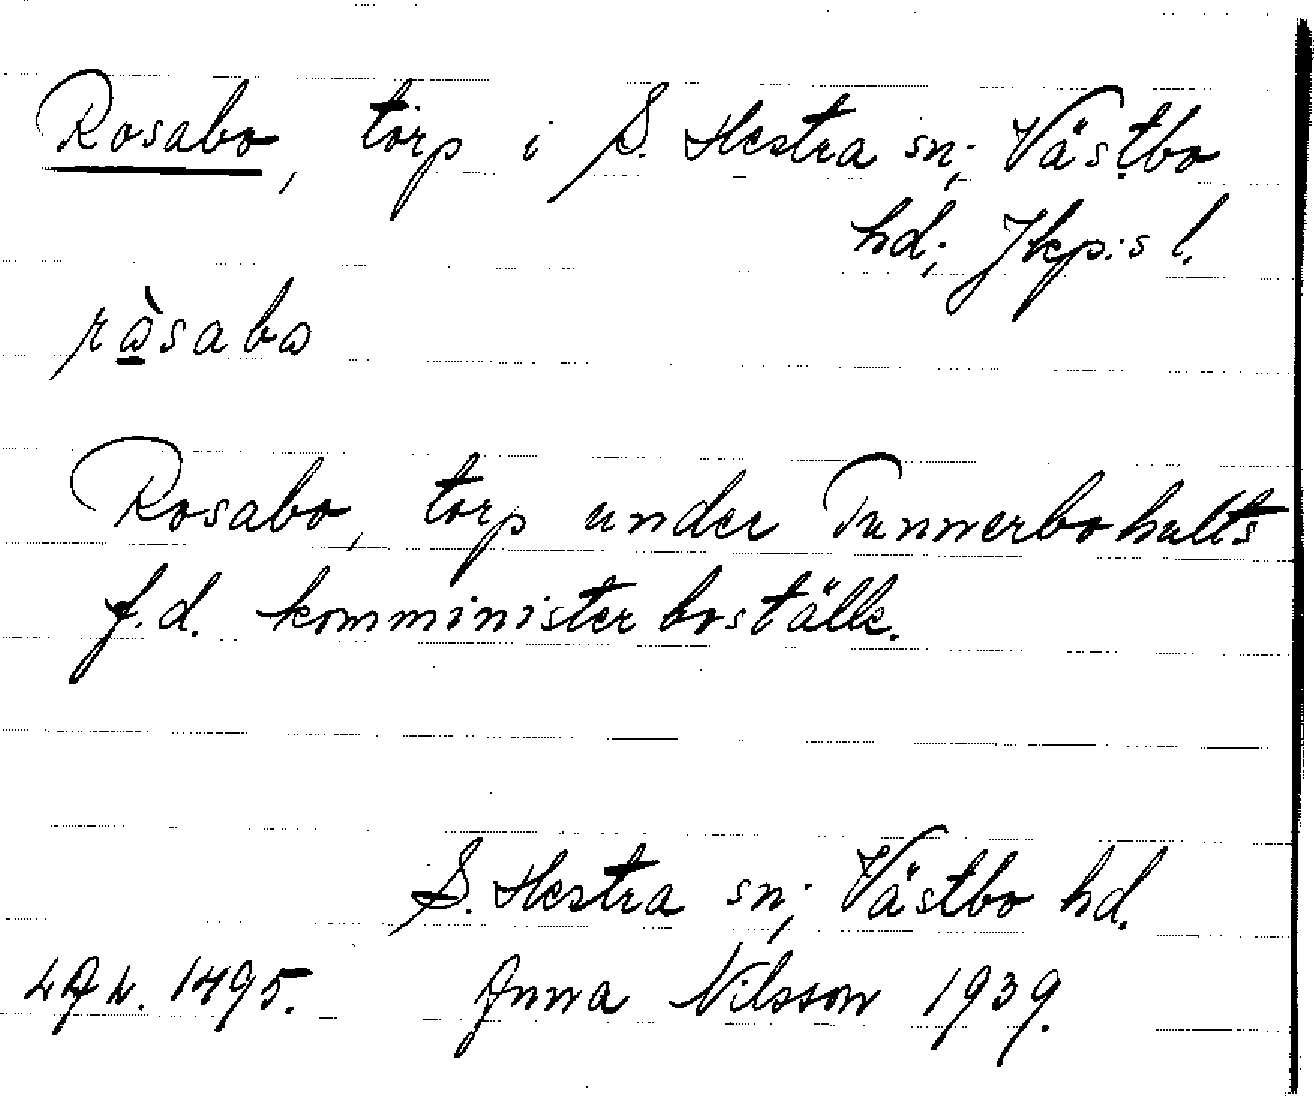 Rosabo, torp i S. Hestra sn; Västbo
hd; Jkp:s l.
Rosabo, torp under Tunnerbohults
f.d. komministerboställe.
S. Hestra sn; Västbo hd.
1495. Anna Nilsson 1939.